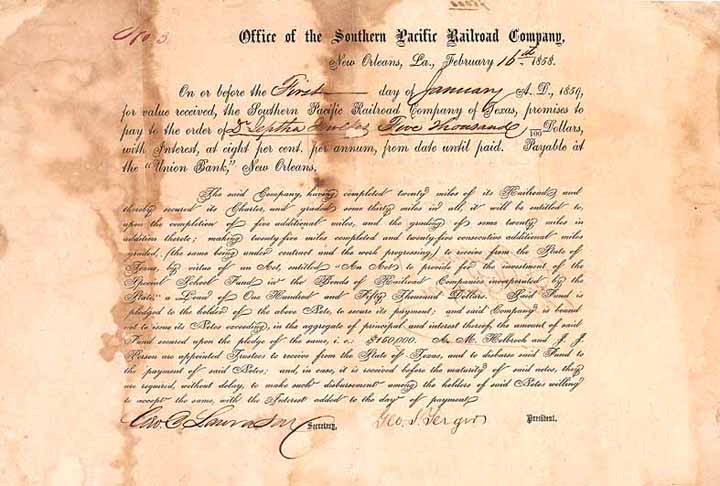 No 3
Office of the Southern Pacific Railroad Company,
New Orleans, La., February 16th 1858.
On or before the First day of January A. D., 1859,
for value received, the Southern Pacific Railroad Company of Texas, promises to
pay to the order of Dr Jeptha Five Thousand /100 Dollars,
with Interest, at eight per cent. per annum, from date until paid. Payable at
the "Union Bank," New Orleans.
The said Company, having completed twenty miles of its Railroad, and
thereby secured its Charter, and graded some thirty miles in all, it will be entitled to,
upon the completion of five additional miles, and the grading of some twenty miles in
addition thereto; making twenty-five miles completed and twenty-five consecutive additional miles
graded, (the same being under contract and the work progressing,) to receive from the State of
Texas, by virtue of an Act, entitled "An Act to provide for the investment of the
Special School Fund in the Bonds of Railroad Companies incorporated by the
State," a Loan of One Hundred and Fifty Thousand Dollars. Said Fund is
pledged to the holder of the above Note, to secure its payment; and said Company is bound
not to issue its Notes exceeding, in the aggregate of principal and interest thereof, the amount of said
Fund secured upon the pledge of the same, i. e. $150,000. A. M. Holbrook and J. J.
Person are appointed Trustees to receive from the State of Texas, and to disburse said Fund to
the payment of said Notes; and, in case, it is received before the maturity of said notes, they
are required, without delay, to make such disbursement among the holders of said Notes willing
to accept the same, with the Interest added to the day of payment.
Geo. Lawrason Secretary. Geo. S. Yerger President.